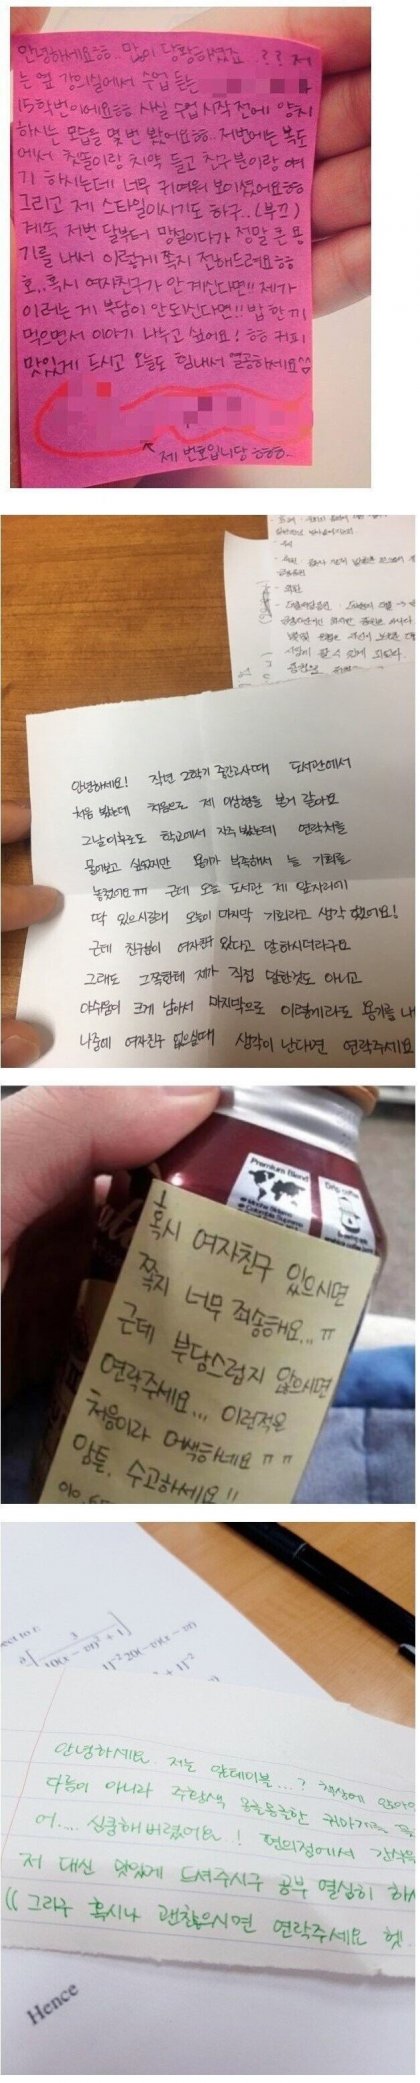 안녕하세요ㅎㅎ.. 많이 당황하셨죠..?? 저
는 옆 강의실에서 수업 듣는
15학번이에요ㅎㅎ 사실 수업시작 전에 양치
하시는 모습을 몇번 봤어요ㅎㅎ.. 저번에는 복도
에서 칫솔이랑 치약 들고 친구분이랑 얘
기 하시는데 너무 귀여워 보이셨어요ㅎㅎ
그리고 제 스타일이시기도 하구..(부끄)
계속 저번 달부터 망설이다가 정말 큰 용
기를 내서 이렇게 쪽지 전해드려요ㅎㅎ
호..혹시 여자친구가 안 계신다면!! 제가
이러는 게 부담이 안되신다면!! 밥 한 끼
먹으면서 이야기 나누고 싶어요! ㅎㅎ 커피
맛있게 드시고 오늘도 힘내서 열공하세요^^
제 번호입니당 ㅎㅎㅎ..
안녕하세요! 작년 2학기 중간고사때 도서관에서
처음 봤는데 처음으로 제 이상형을 본거 같아요
그날이후로도 학교에서 자주 봤는데 연락처를
물어보고 싶었지만 용기가 부족해서 늘 기회를
놓쳤어요ㅠㅠ 근데 오늘 도서관 제 앞자리에
딱 있으시길래 오늘이 마지막 기회라고 생각 했어요!
근데 친구분이 여자친구 있다고 말하시더라구요
그래도 그쪽한테 제가 직접 말한것도 아니고
아쉬움이 크게 남아서 마지막으로 이렇게라도 용기를 내
나중에 여자친구 없으실때 생각이 난다면 연락주세요
Premium Blend
Drip coffee
혹시 여자친구 있으시면
쪽지 너무 죄송해요...ㅠ
근데 부담스럽지 않으시면
연락주세요... 이런적은
처음이라 어색하네요 ㅠㅠ
암튼. 수고하세요!!
안녕하세요. 저는 앞테이블...? 책상에 앉아있
다름이 아니라 주황색 용울동울한 귀마개를
어.... 심쿵해버렸어요..! 편의점에서 간식을
저 대신 맛있게 드셔주시구 공부 열심히 하세
((그리구 혹시나 괜찮으시면 연락주세요 헷
Hence